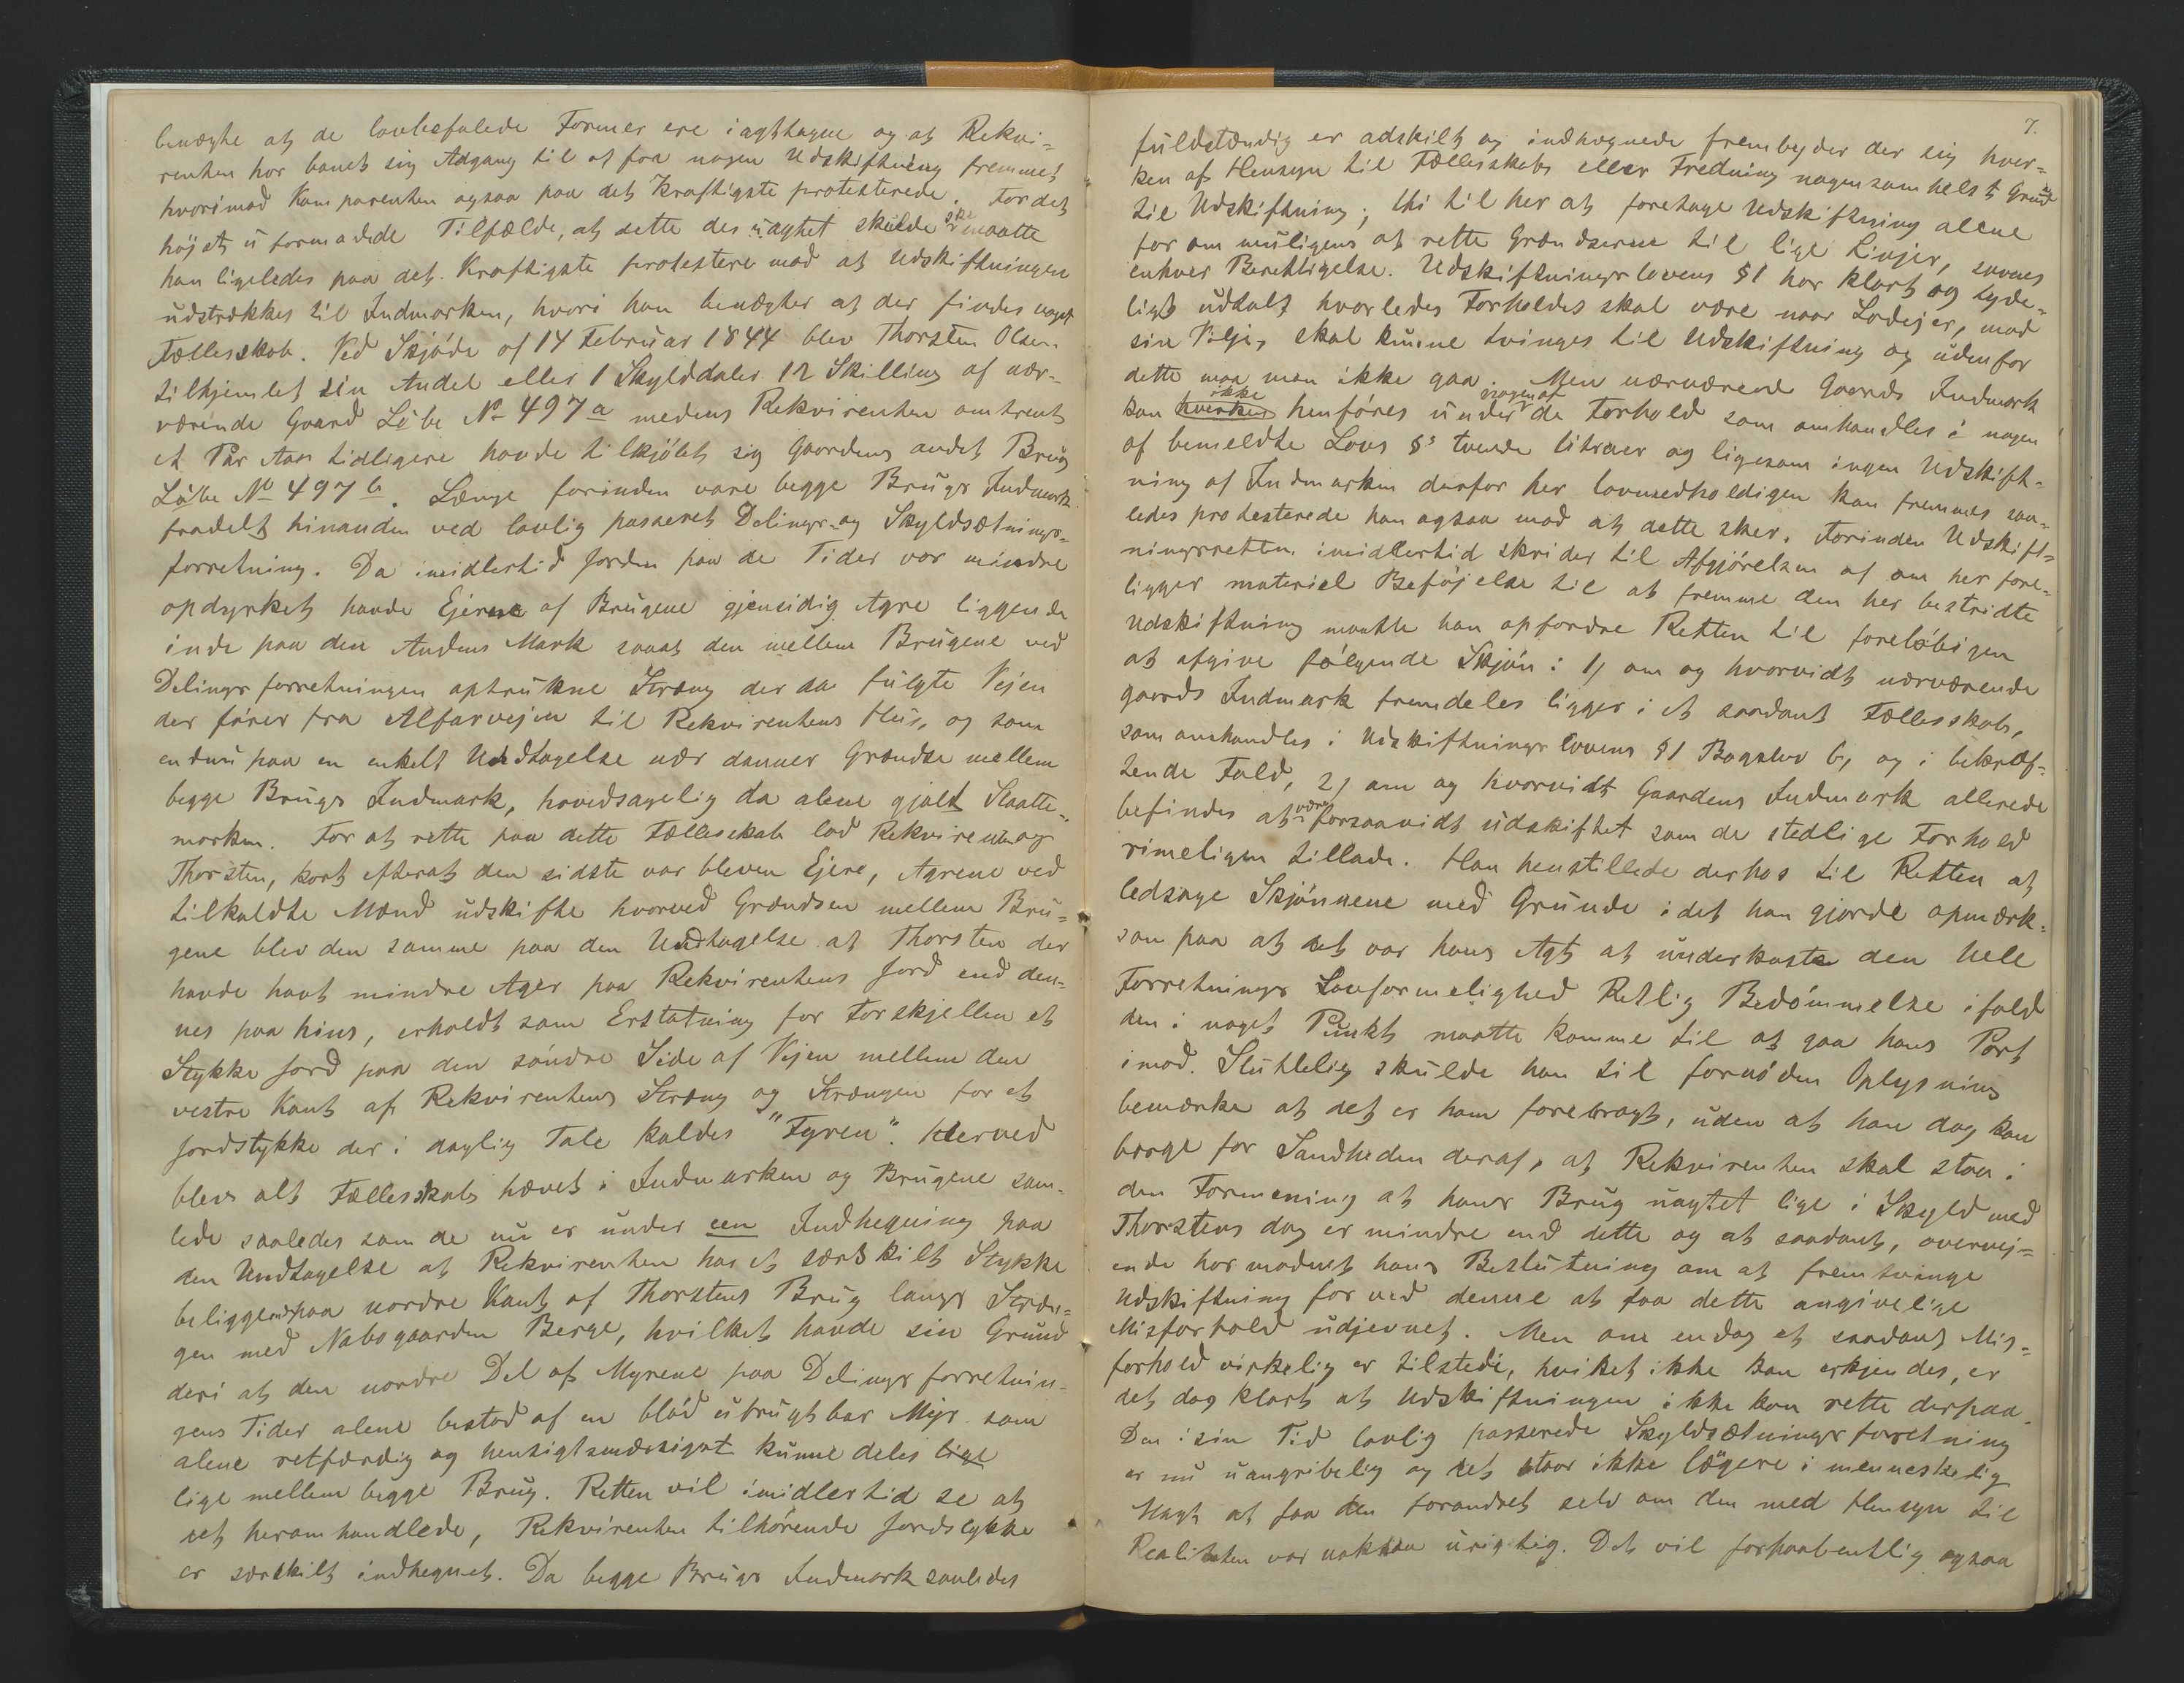 benægte at de lovbefalede Former ere iagttagne og at Rekvi-
renten har banet sig Adgang til at faa nogen Udskiftning fremmet
hvorimod Komparenten ogsaa paa det Kraftigste protesterede. For det
højst uformodede Tilfælde, at dette des uagtet skulde ske maatte
han ligeledes paa det Kraftigste protestere mod at Udskiftningen
udstrækkes til Indmarken, hvori han benægter at der findes noget
Fællesskab. Ved Skjøde af 14 Februar 1844 blev Thorsten Olsen
tilhjemlet sin Andel eller 1 Skylddaler 12 Skilling af nær-
værende Gaard Løbe No 497a medens Rekvirenten omtrent
et Par Aar tidligere havde tilkjøbt sig Gaardens andet Brug
Løbe No 497b. Længe forinden vare begge Brugs Indmark
fradelt hinanden ved lovlig passeret Delings- og Skyldsætnings-
forretning. Da imidlertid Jorden paa de Tider var mindre
opdyrket havde Ejerne af Brugene gjensidig Agre liggende
inde paa den Andens Mark saaat den mellem Brugene ved
Delingsforretningen optrukne Stræng der da fulgte Vejen
der fører fra Alfarvejen til Rekvirentens Hus, og som
endnu paa en enkelt Undtagelse nær danner Grændse mellem
begge Brugs Indmark, hovedsagelig da alene gjaldt Slaatte-
marken. For at rette paa dette Fællesskab lod Rekvirenten og
Thorsten, kort efterat den sidste var bleven Ejere, Agrene ved
tilkaldte Mænd udskifte hvorved Grændsen mellem Bru-
gene blev den samme paa den Undtagelse at Thorsten der
havde havt mindre Ager paa Rekvirentens Jord end den-
nes paa hins, erholdt som Erstatning for Forskjellen et
Stykke Jord paa den søndre Side af Vejen mellem den
vestre Kant af Rekvirentens Stræng og Strængen for et
Jordstykke der i daglig Tale kaldes "Fyren". Herved
blev alt Fællesskab hævet i Indmarken og Brugene sam-
lede saaledes som de nu er under een Indhegning paa
den Undtagelse at Rekvirenten har et særskilt Stykke
beliggende paa nordre Kant af Thorstens Brug langs Stræn-
gen med Nabogaarden Berge, hvilket havde sin Grund
deri at den nordre Del af Myrene paa Delingsforretnin-
gens Tider alene bestod af en blød ufrugtbar Myr som
alene retfærdig og hensigtsmæssigst kunne deles lige
lige mellem begge Brug. Retten vil imidlertid se at
det heromhandlede, Rekvirenten tilhørende Jordstykke
er særskilt indhegnet. Da begge Brugs Indmark saaledes
7.
fuldstændig er adskilt og indhegnede frembyder der sig hver-
ken af Hensyn til Fællesskab eller Fredning nogensomhelst Grund
til Udskiftning; thi til her at foretage Udskiftning alene
for om muligens at rette Grændserne til lige Linjer, savnes
enhver Berettigelse. Udskiftningslovens §1 har klart og tyde-
ligt udtalt hvorledes Forholdet skal være naar Lodejer, mod
sin Vilje, skal kunne tvinges til Udskiftning og udenfor
dette maa man ikke gaa. Men nærværende Gaards Indmark
kan hverken ikke henføres under nogen af de Forhold som omhandles i nogen
af bemeldte Lovs §'s tvende litraer og ligesom ingen Udskift-
ning af Indmarken derfor her lovmedholdigen kan fremmes saa-
ledes protesterede han ogsaa mod at dette sker. Forinden Udskift-
ningsretten imidlertid skrider til Afgjørelsen af om her fore-
ligger materiel Beføjelse til at fremme den her bestridte
Udskiftning maatte han opfordre Retten til foreløbigen
at afgive følgende Skjøn: 1) om og hvorvidt nærværende
gaards Indmark fremdeles ligger i et saadant Fællesskab,
som omhandles i Udskiftningslovens §1 Bogstav b, og i bekræf-
tende Fald, 2) om og hvorvidt Gaardens Indmark allerede
befindes at være forsaavidt udskiftet som de stedlige Forhold
rimeligen tillade. Han henstillede derhos til Retten at
ledsage Skjønnene med Grunde idet han gjorde opmærk-
som paa at det var hans Agt at underkaste den hele
Forretnings Lovformelighed Retlig Bedømmelse ifald
den i noget Punkt maatte komme til at gaa hans Part
imod. Sluttelig skulde han til fornøden Oplysning
bemærke at det er ham forebragt, uden at han dog kan
borge for Sandheden deraf, at Rekvirenten skal staa i
den Formening at hans Brug uagtet lige i Skyld med
Thorstens dog er mindre end dette og at saadant, overvej-
ende har modnet hans Beslutning om at fremtvinge
Udskiftning for ved denne at faa dette angivelige
Misforhold udjevnet. Men om endog et saadant Mis-
forhold virkelig er tilstede, hvilket ikke kan erkjendes, er
det dog klart at Udskiftningen ikke kan rette derpaa.
Den i sin Tid lovlig passerede Skyldsætningsforretning
er nu uangribelig og det staar ikke længere i menneskelig
Magt at faa den forandret selv om den med Hensyn til
Realiteten var nok saa urigtig. Det vil forhaabentlig ogsaa